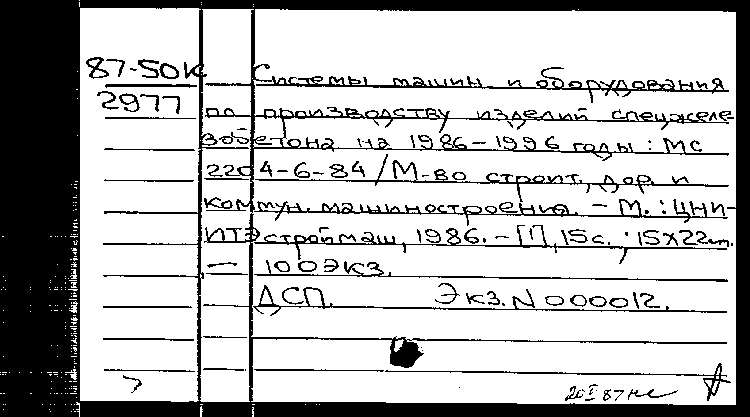 87-50К Системы машин и оборудования
2977 по производству изделий спецжеле
зобетона на 1986-1996 годы: МС
2204-6-84/М-во строит., дор. и
коммун. машиностроения. - М.: ЦНИ-
ИТЭстроймаш, 1986. - [1], 15 с.; 15х22см.
— 100 экз.
ДСП. Экз. N 000012.
20 I 87